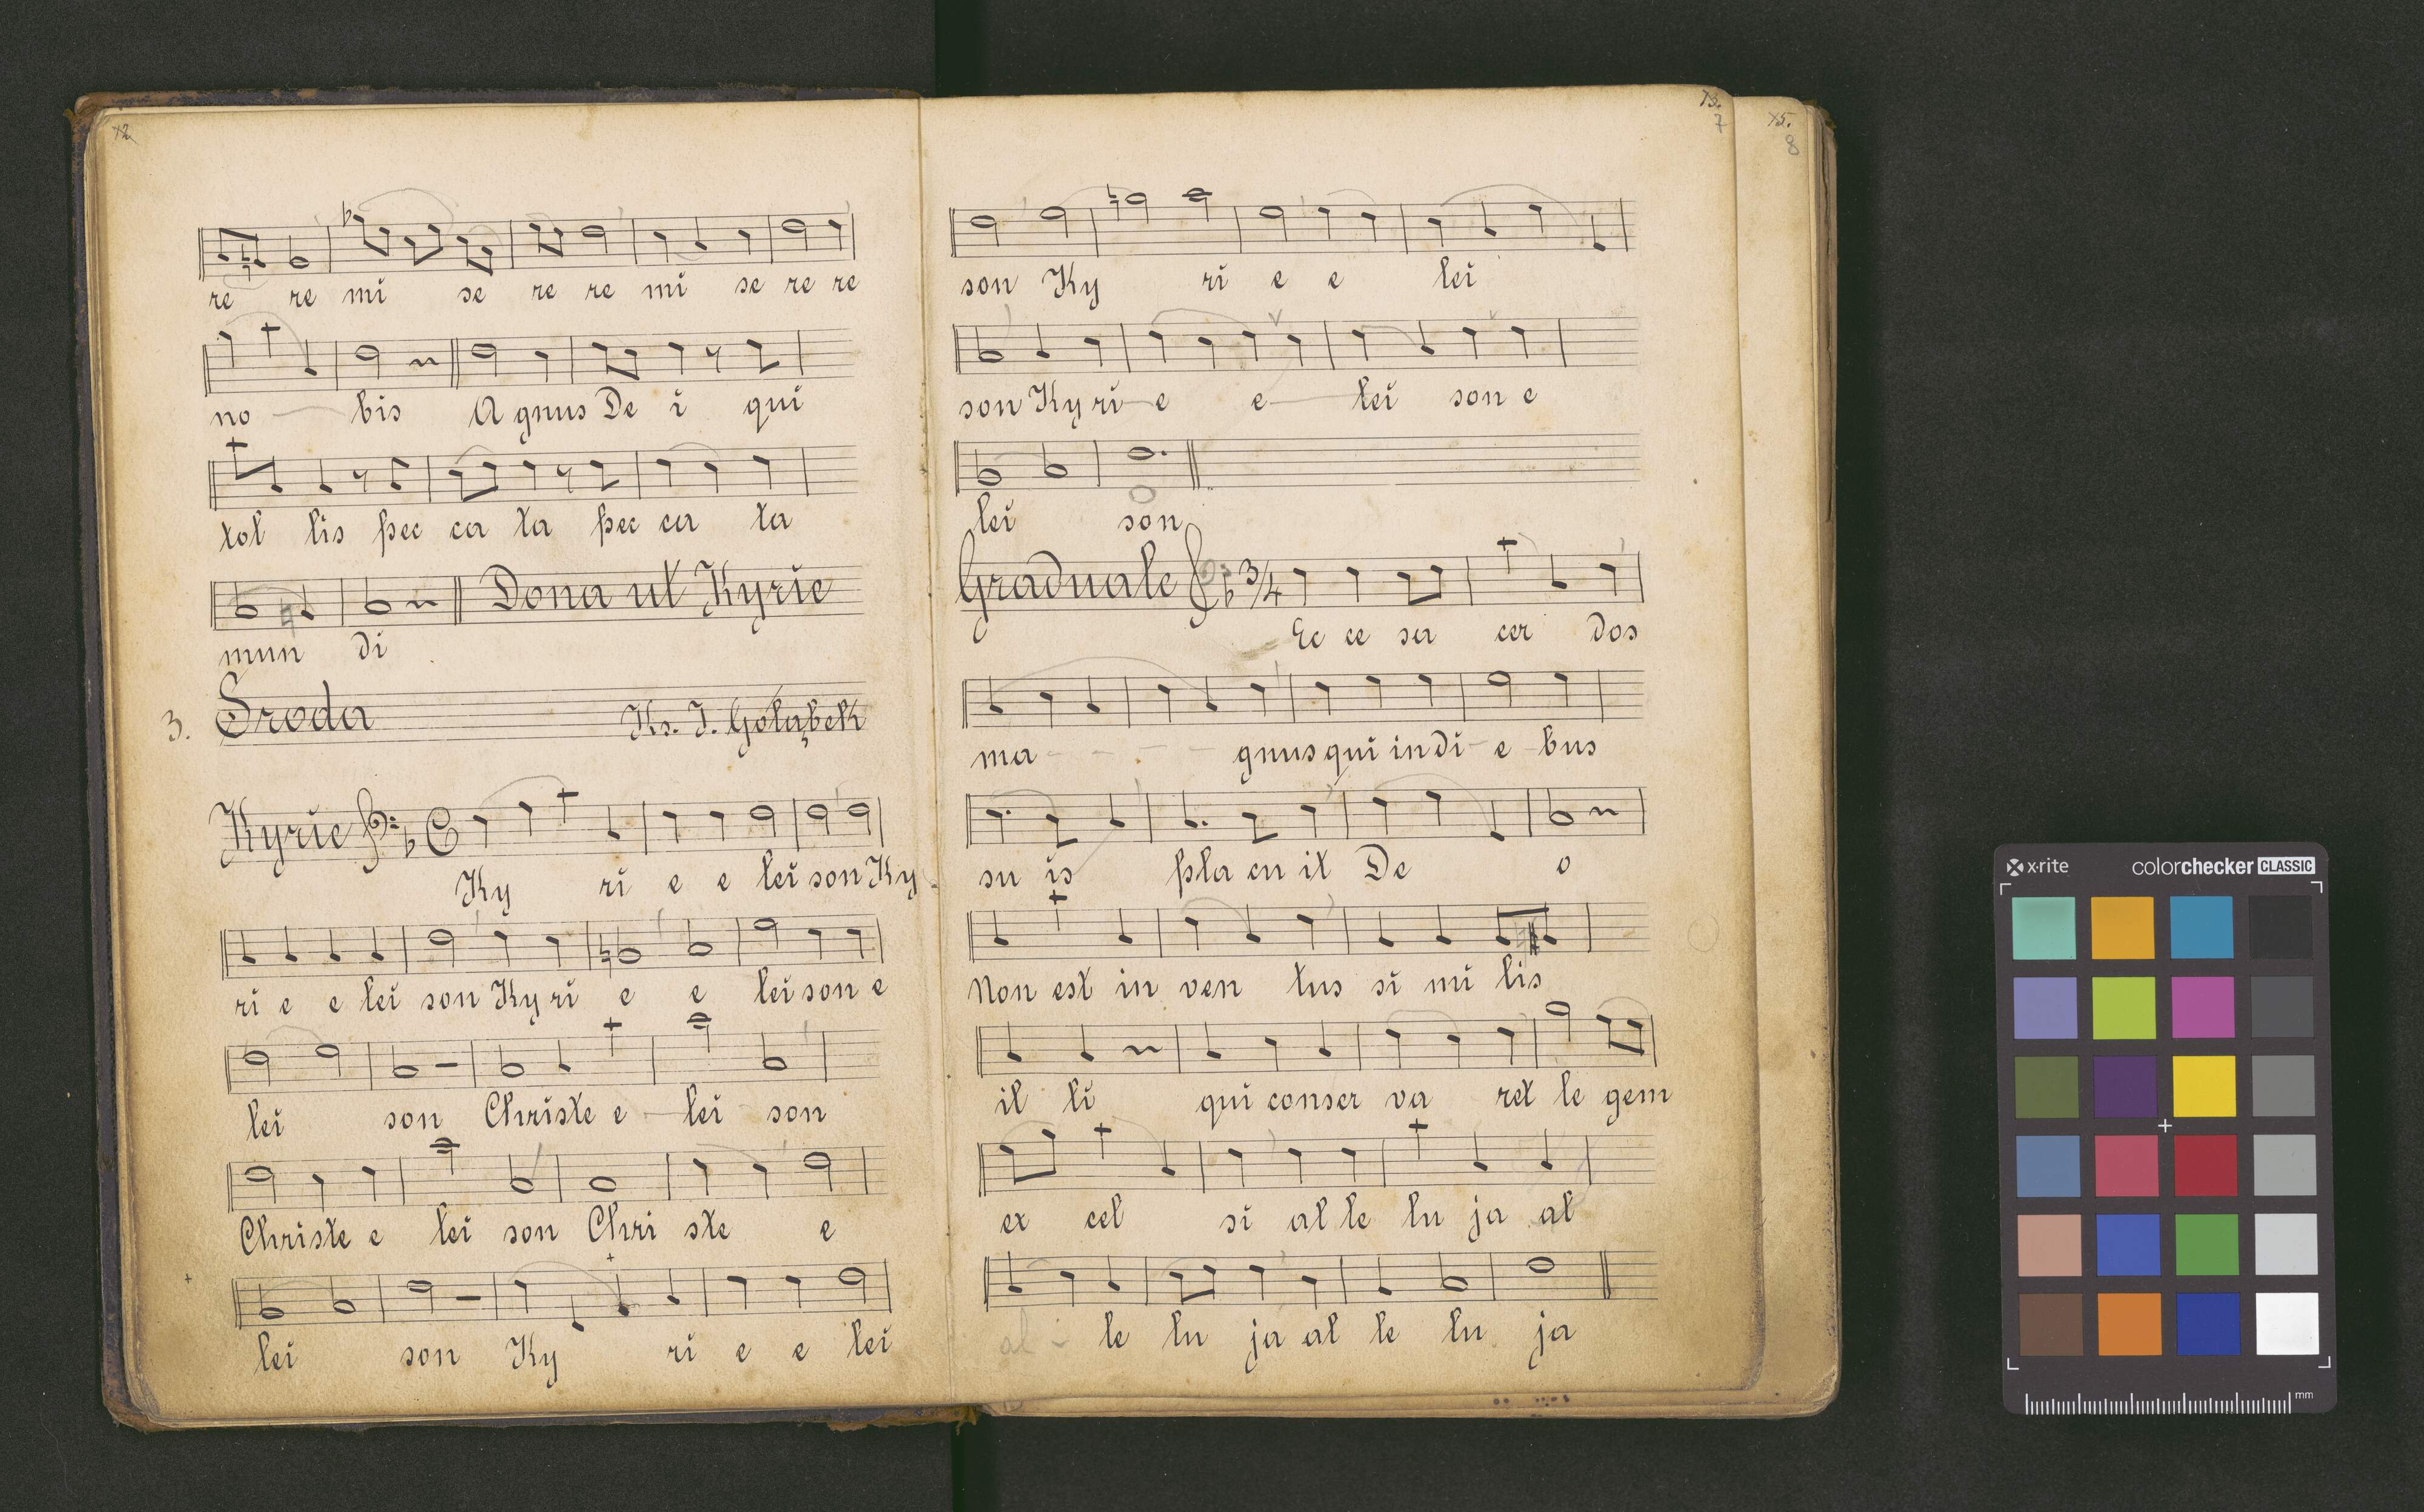 12
re re mi se re re mi se re re
no bis A gnus De i qui
tol lis pec ca ta pec ca ta
Dona ut Kyrie
mun di
3. Sroda Ks. J. Gołąbek
Kyrie
Ky ri e e lei son Ky
ri e e lei son Ky ri e e lei son e
lei son Christe e lei son
Christe e lei son Chri ste e
lei son Ky ri e e lei
13.
7
son Ky ri e e lei
son Ky ri e e lei son e
lei son
Graduale 3/4
Ec ce sa cer dos
ma gnus qui in di e bus
su is pla cu it De o
Non est in ven tus si mi lis
il li qui conser va ret le gem
ex cel si al le lu ja al
al le lu ja al le lu ja
15.
8
x-rite colorchecker CLASSIC
mm